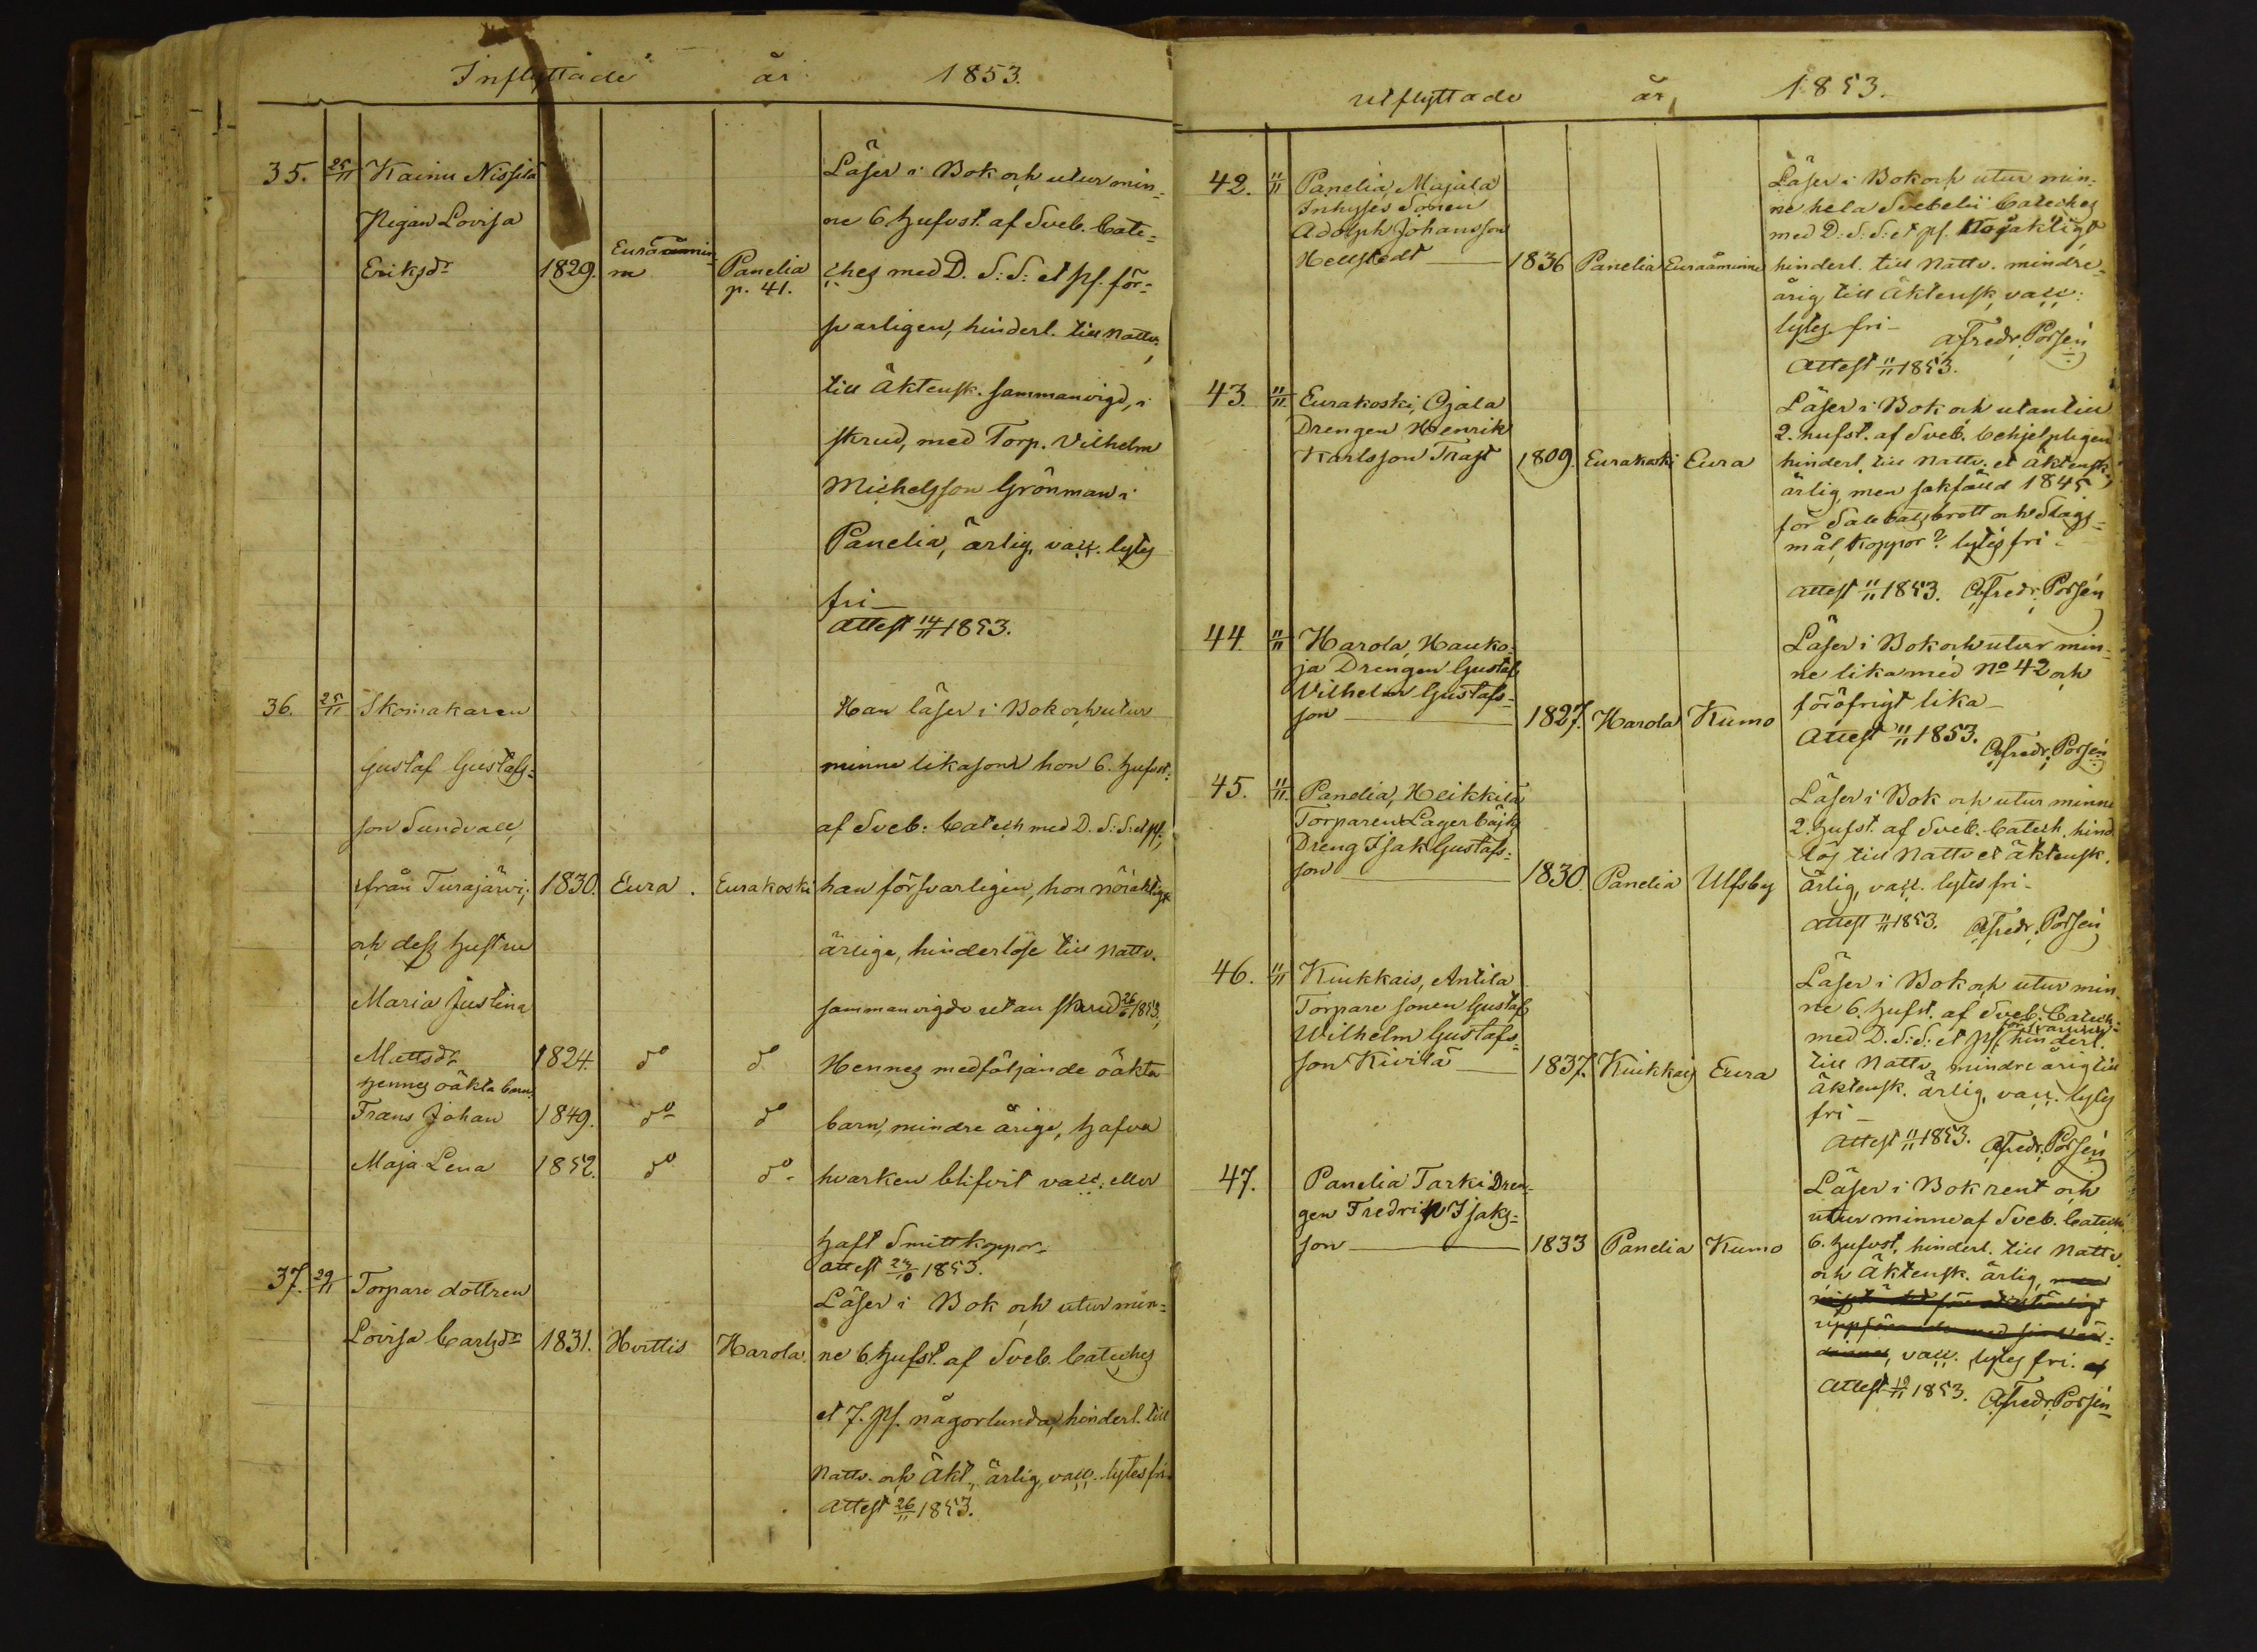 Inflyttade år 1853.
35. 25/11 Kainu Nissilä
Pigan Lovisa
Eriksdr 1829. Euraåmin-
ne Panelia
p. 41.
Läser i Bok och utur min-
ne 6 hufvst. af Sveb. Cate-
ches med D. S: S: et ps. för-
svarligen, hinderl. till Nattv.
till Äktensk. sammanvigd, i
skrud, med Torp. Vilhelm
Michelsson Grönman i
Panelia, ärlig, vacc. lytes
fri
Attest 14/11 1853.
36. 25/11 Skomakaren
Gustaf Gustafs-
son Sundvall,
från Turajärvi, 1830. Eura. Eurakoski
och dess hustru
Maria Justina
Mattsdr 1824. do do
hennes oäkta barn
Frans Johan 1849. do do
Maja Lena 1852. do do
Han läser i Bok och utur
minne likasom hon 6. hufvst.
af Sveb. Catech med D. S: S: et ps,
han försvarligen, hon
ärliga, hinderlöse till Nattv.
sammanvigde utan skrud 26/6 1853,
Hennes medföljande oäkta
barn, mindre årige, hafva
hvarken blifvit vacc. eller
haft Smittkoppor
attest 24/10 1853.
37. 29/11 Torpare dottren
Lovisa Carlsdr 1831. Hvittis Harola.
Läser i Bok och utur min-
ne 6 hufst. af Sveb. Cateches
et 7. ps. någorlunda, hinderl. till
Nattv. och Äkt., ärlig, vacc. lytes fri
Attest 26/11 1853.
utflyttade år 1853.
42. 11/11 Panelia, Majala
Inhyses Sonen
Adolph Johansson
Hellstedt 1836 Panelia Euraåminne
Läser i Bok och utur min-
ne hela Svebelii Cateches
med D: S: S: et ps. Nojaktigt
hinderl. till Nattv. mindre-
årig till Äktensk, vacc.
lytes fri
A Fredr. Porsén
Attest 11/11 1853.
43. 11/11. Eurakoski, Ojala
Drengen Henrik
Karlsson Trast 1809. Eurakoski Eura
Läser i Bok och utantill
2. hufst. af Sveb. behjelpligen
hinderl. till Nattv. et Äktensk.
ärlig men sakfälld 1845
för Sabbatsbrott och Slags-
mål, koppor? lytes fri
attest 11/11 1853. A Fredr. Porsén
44. 11/11 Harola, Hauko-
ja Drengen Gustaf
Vilhelm Gustafs-
son 1827. Harola Kumo
Läser i Bok och utur min-
ne lika med No 42 och
föröfrigt lika
Attest 11/11 1853. A Fredr. Porsén
45. 11/11. Panelia, Heikkilä
Torparen Lagerbäcks
Dreng Isak Gustafs-
son 1830. Panelia Ulfsby
Läser i Bok och utur minne
2. hufst. af Sveb. Catech, hind
lös till Nattv et Äktensk.
ärlig, vacc. lytes fri
attest 11/11 1853. A Fredr. Porsén
46. 11/11 Kiukkais, Antila
Torpare sonen Gustaf
Wilhelm Gustafs-
son Kivilä 1837. Kiukkais Eura
Läser i Bok och utur min-
ne 6. hufst. af Sveb. Catech.
försvarligen
med D. S: S: et ps. hinderl.
till Nattv. mindre årig till
äktensk. ärlig, vacc. lytes
fri
Attest 11/11 1853. A Fredr. Porsén
47. Panelia Tarki Dren-
gen Fredrik Isaks-
son 1833 Panelia Kumo
Läser i Bok rent och
utur minne af Sveb. Catech.
6. hufvst. hinderl. till Nattv.
och Äktensk. ärlig, men
vacc. lytes fri.
Attest 19/11 1853. A Fredr. Porsén